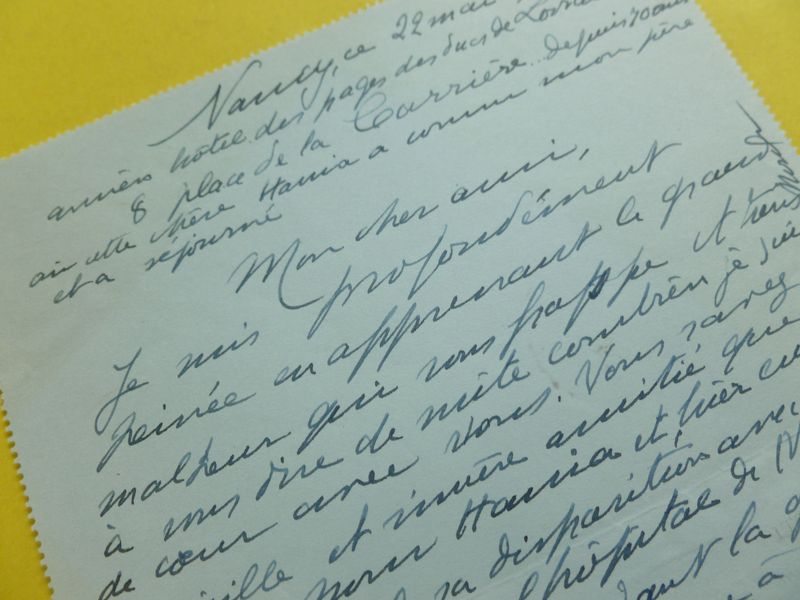 Nancy, ce 22 mai
ancien hôtel des pages des ducs de Lorraine
8 place de la Carrière depuis 70 ans
où cette chère Hania a connu mon père
et a séjourné
Mon cher ami,
Je suis profondément
peinée en apprenant le grand
malheur qui vous frappe et tiens
à vous dire de suite combien je suis
de coeur avec vous. Vous savez
vieille et sincère amitié que
pour Hania et, hier
sa disposition avec
l'hôpital de N
dant la
à